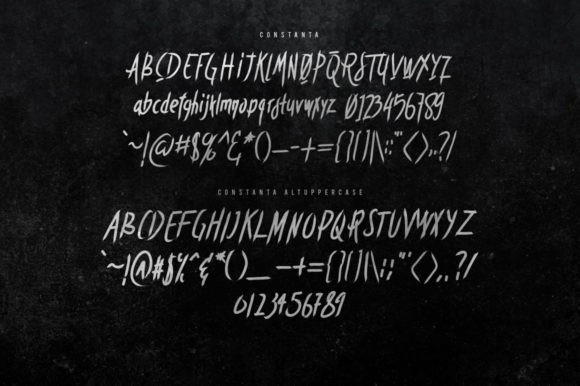 CONSTANTA
ABCDEFGHIJKLMNØPQRSTUVWXYZ
abcdefghijklmnopqrstuvwxyz 0123456789
`~!@#$%^&*()_-+={}[]|\:;"'<>,.?/
CONSTANTA ALTUPPERCASE
ABCDEFGHIJKLMNOPQRSTUVWXYZ
`~!@#$%^&*()_-+={}[]|\:;"'<>,.?/
0123456789